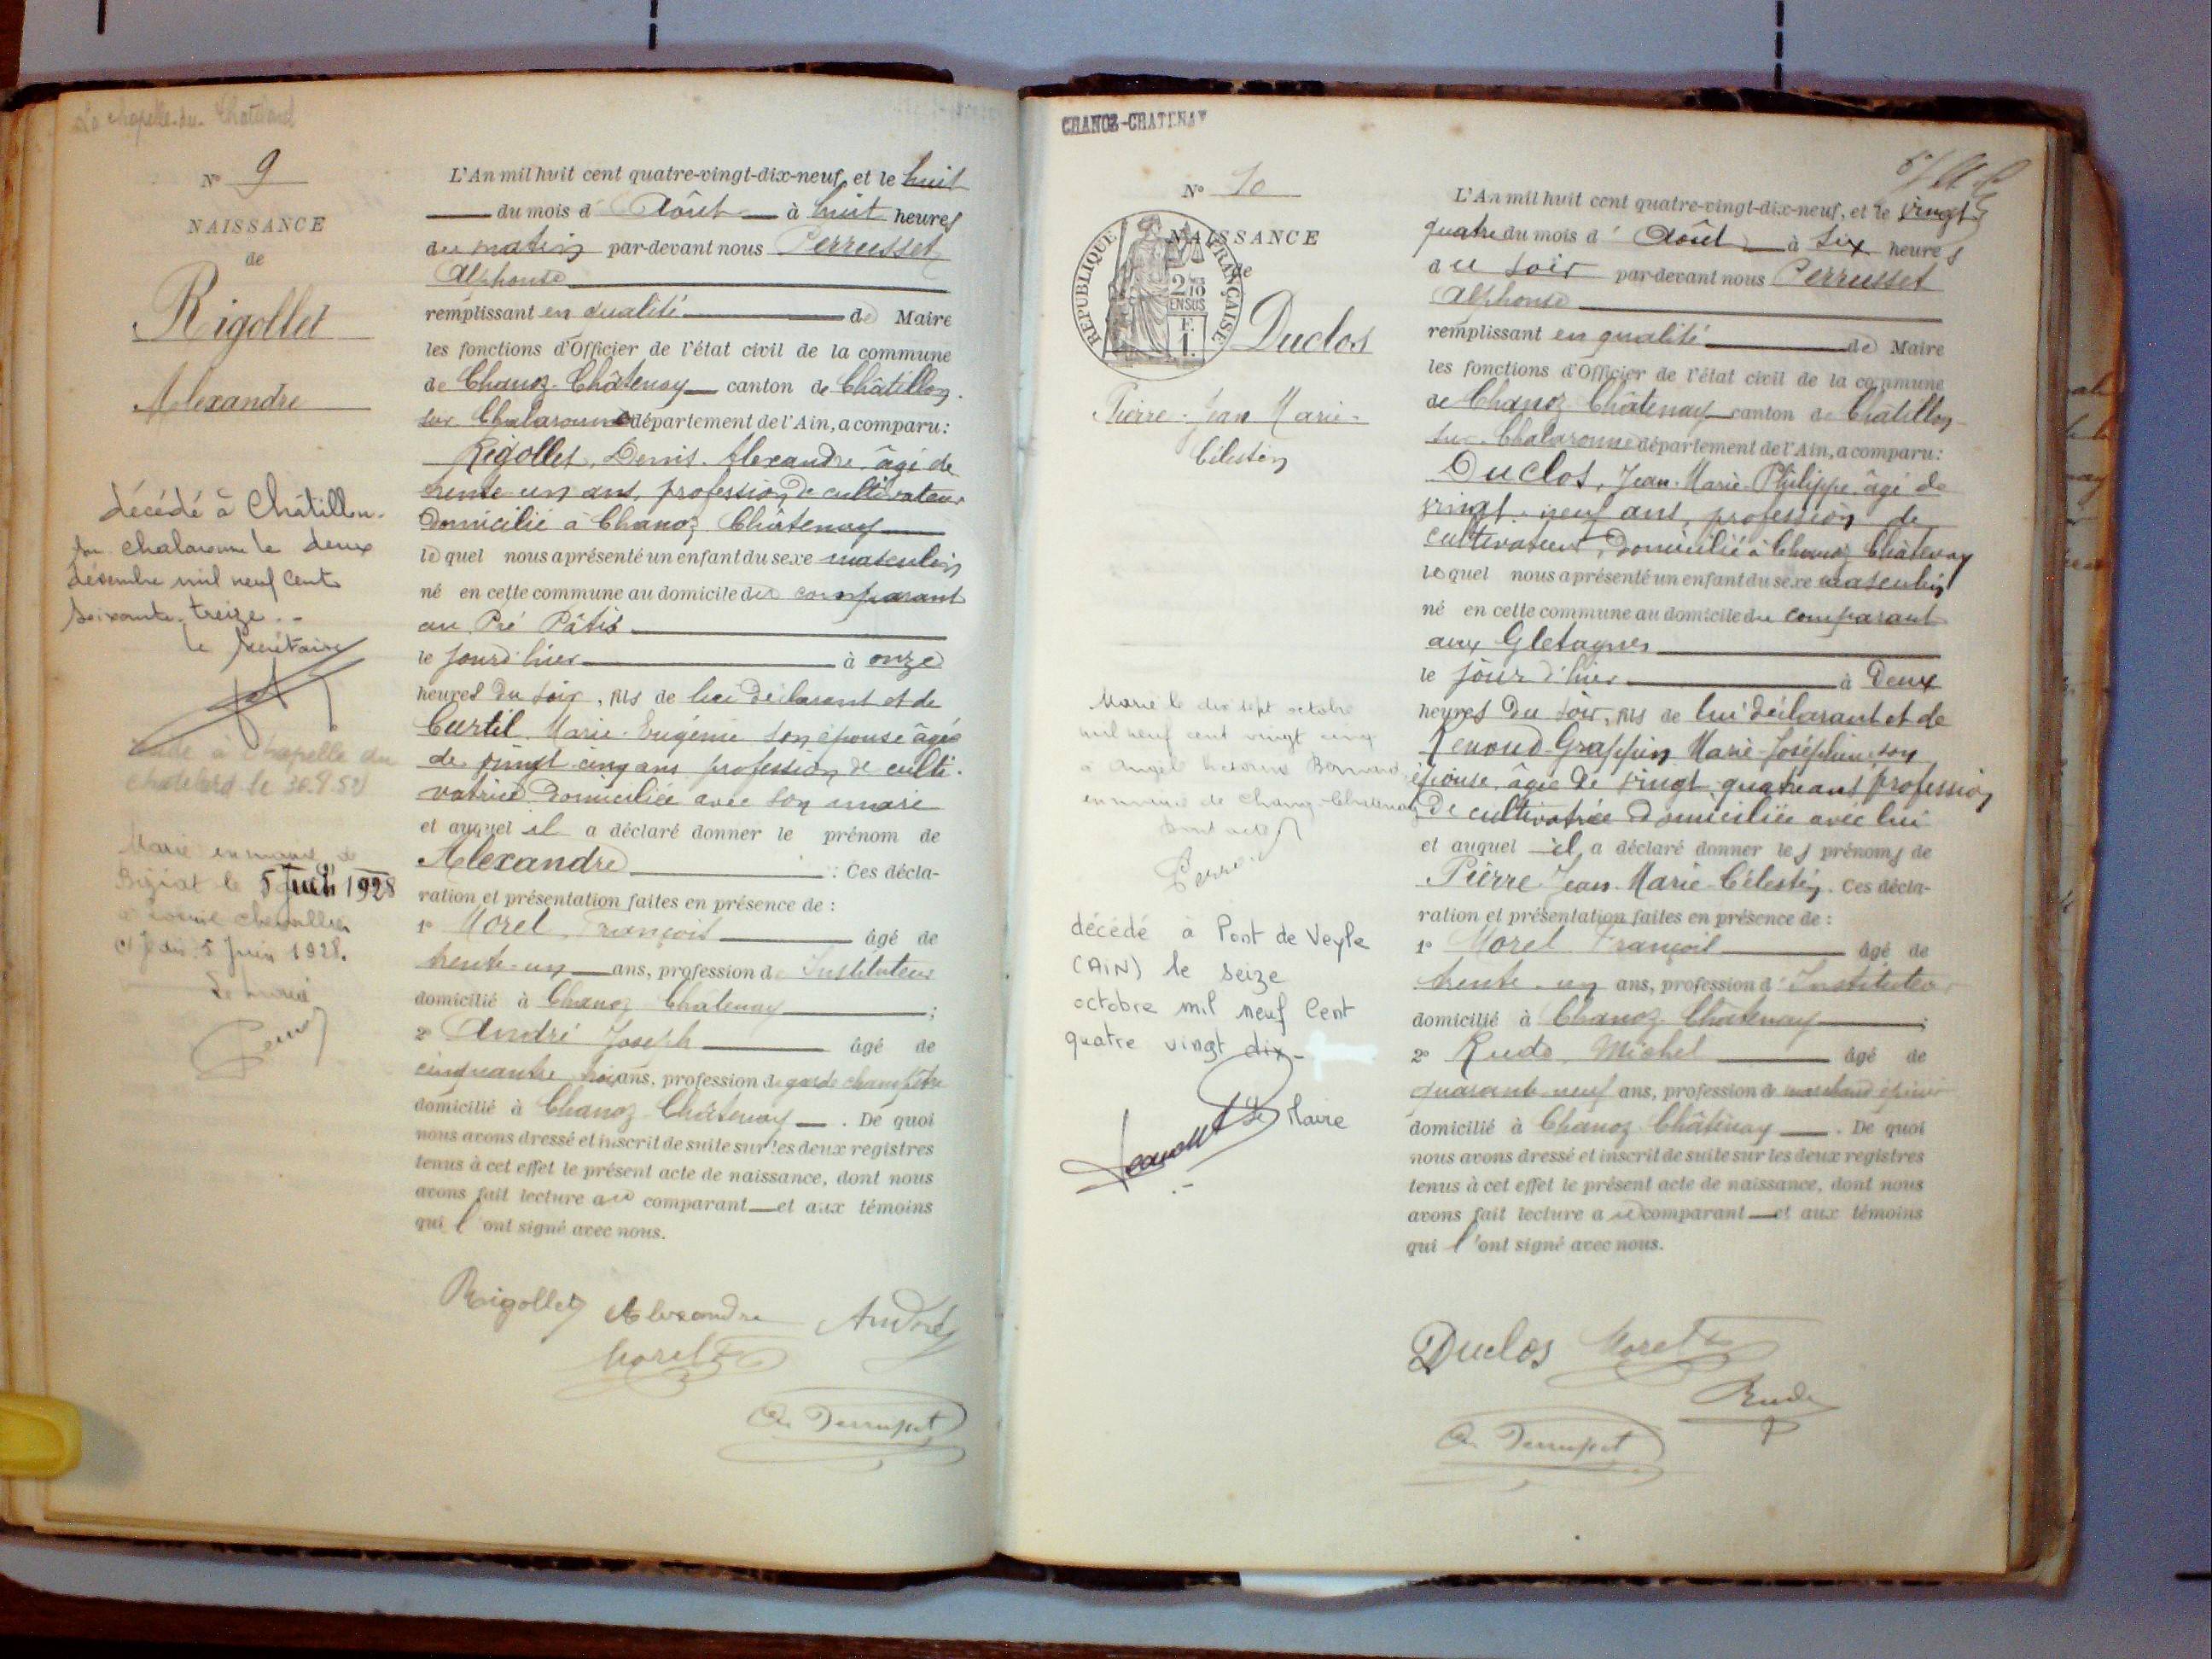 La Chapelle-du-Chatelard
N° 9
NAISSANCE
de
Rigollet
Alexandre
décédé à Châtillon-
sur Chalaronne le deux
décembre mil neuf cent
soixante-treize..
le Secrétaire
à Chapelle du
Chatelard le
Marié en mairie de
Biziat le 5 Juin 1928
à Chevallier
5 Juin 1928.
Le maire
L'An mil huit cent quatre-vingt-dix-neuf, et le huit
du mois d' Août à huit heures
du matin par-devant nous Perrusset
Alphonse
remplissant en qualité de Maire
les fonctions d'Officier de l'état civil de la commune
de Chanoz-Châtenay canton de Châtillon-
sur Chalaronne département de l'Ain, a comparu:
Rigollet, Denis-Alexandre, âgé de
trente-un ans, profession de cultivateur
domicilié à Chanoz-Châtenay
lequel nous a présenté un enfant du sexe masculin
né en cette commune au domicile du comparant
au Pré Pâtis
le jour d'hier à onze
heures du soir, fils de lui déclarant et de
Curtil Marie-Eugénie son épouse âgée
de vingt-cinq ans profession de culti-
vatrice domiciliée avec son mari
et auquel il a déclaré donner le prénom de
Alexandre : Ces décla-
ration et présentation faites en présence de :
1° Morel François âgé de
trente-un ans, profession d' Instituteur
domicilié à Chanoz Châtenay ;
2° André Joseph âgé de
cinquante trois ans, profession de garde champêtre
domicilié à Chanoz-Châtenay . De quoi
nous avons dressé et inscrit de suite sur les deux registres
tenus à cet effet le présent acte de naissance, dont nous
avons fait lecture au comparant et aux témoins
qui l'ont signé avec nous.
Rigollet Alexandre André
Morel
A. Perrusset
CHANOZ-CHATENAY
N° 10
NAISSANCE
de
RÉPUBLIQUE FRANÇAISE
2/10
EN SUS
Duclos
Pierre-Jean Marie-
Célestin
Marié le dix sept octobre
mil neuf cent vingt cinq
à Angèle
en mairie de Chanoz-Chatenay
décédé à Pont de Veyle
(AiN) le seize
octobre mil neuf cent
quatre vingt dix-
Le Maire
L'An mil huit cent quatre-vingt-dix-neuf, et le vingt
quatre du mois d' Août à six heures
du soir par-devant nous Perrusset
Alphonse
remplissant en qualité de Maire
les fonctions d'Officier de l'état civil de la commune
de Chanoz-Châtenay canton de Châtillon
sur-Chalaronne département de l'Ain, a comparu:
Duclos, Jean-Marie-Philippe, âgé de
vingt-neuf ans, profession de
cultivateur, domicilié à Chanoz Châtenay
lequel nous a présenté un enfant du sexe masculin
né en cette commune au domicile du comparant
aux Gletagnes
le jour d'hier à Deux
heures du soir, fils de lui déclarant et de
Renoud-Grappin Marie-Joséphine son
épouse, âgée de vingt quatre ans profession
de cultivatrice domiciliée avec lui
et auquel il a déclaré donner les prénoms de
Pierre Jean-Marie-Célestin. Ces décla-
ration et présentation faites en présence de :
1° Morel François âgé de
trente-un ans, profession d' Instituteur
domicilié à Chanoz-Châtenay ;
2° Rude Michel âgé de
quarante-neuf ans, profession de marchand épicier
domicilié à Chanoz-Châtenay . De quoi
nous avons dressé et inscrit de suite sur les deux registres
tenus à cet effet le présent acte de naissance, dont nous
avons fait lecture au comparant et aux témoins
qui l'ont signé avec nous.
Duclos Morel
Rude
A. Perrusset